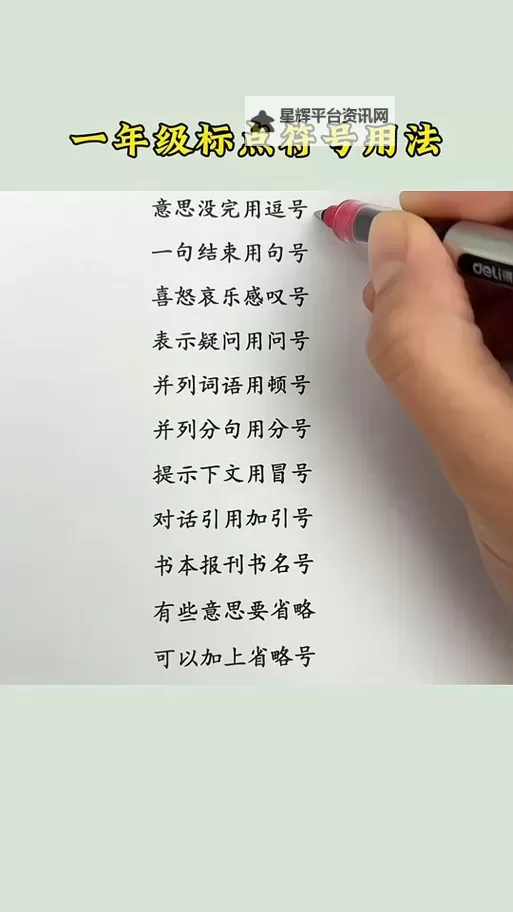 星辉平台资讯网
一年级标点符号用法
意思没完用逗号
一句结束用句号
喜怒哀乐感叹号
表示疑问用问号
并列词语用顿号
并列分句用分号
提示下文用冒号
对话引用加引号
书本报刊书名号
有些意思要省略
可以加上省略号
deli